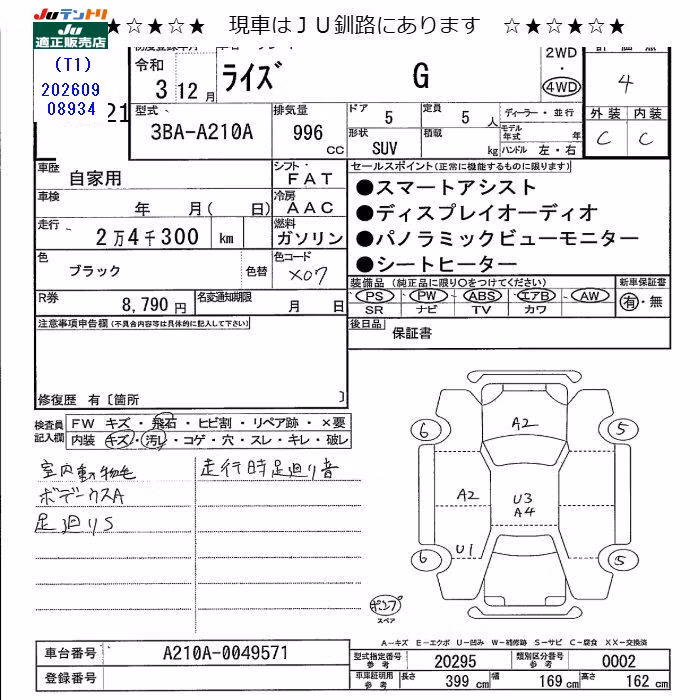 JUテントリ
JU 適正販売店
★☆★☆★ 現車はJU釧路にあります ☆★☆★☆★
(T1)
202609
08934
令和 3 12月
ライズ G
2WD・4WD
4
型式 3BA-A210A
排気量 996 CC
ドア 5 定員 5人
形状 SUV 積載 kg
ディーラー・並行
モデル年式 年
ハンドル 左・右
外装 内装
C C
車歴 自家用
シフト FAT
車検 年 月( 日)
冷房 AAC
走行 2万4千300 km
燃料 ガソリン
色 ブラック 色替
色コード X07
R券 8,790円
名変通知期限 月 日
セールスポイント(正常に機能するものに限ります)
●スマートアシスト
●ディスプレイオーディオ
●パノラミックビューモニター
●シートヒーター
装備品(純正品に限り○をつけてください)
PS・PW・ABS・エアB・AW
SR ナビ TV カワ
新車保証書
有・無
後日品 保証書
注意事項申告欄(不具合内容等は具体的に記入して下さい)
修復歴 有〔箇所 〕
検査員記入欄
FW キズ・飛石・ヒビ割・リペア跡・×要
内装 キズ・汚れ・コゲ・穴・スレ・キレ・破レ
室内動物毛
ボデークスA
足廻りS
走行時足廻り音
6 A2 5
A2 U3
A4
U1
6 5
ポンプ
スペア
A-キズ E-エクボ U-凹み W-補修跡 S-サビ C-腐食 XX-交換済
車台番号 A210A-0049571
登録番号
型式指定番号 参考 20295
類別区分番号 参考 0002
車庫証明用 参考 長さ 399 cm 幅 169 cm 高さ 162 cm